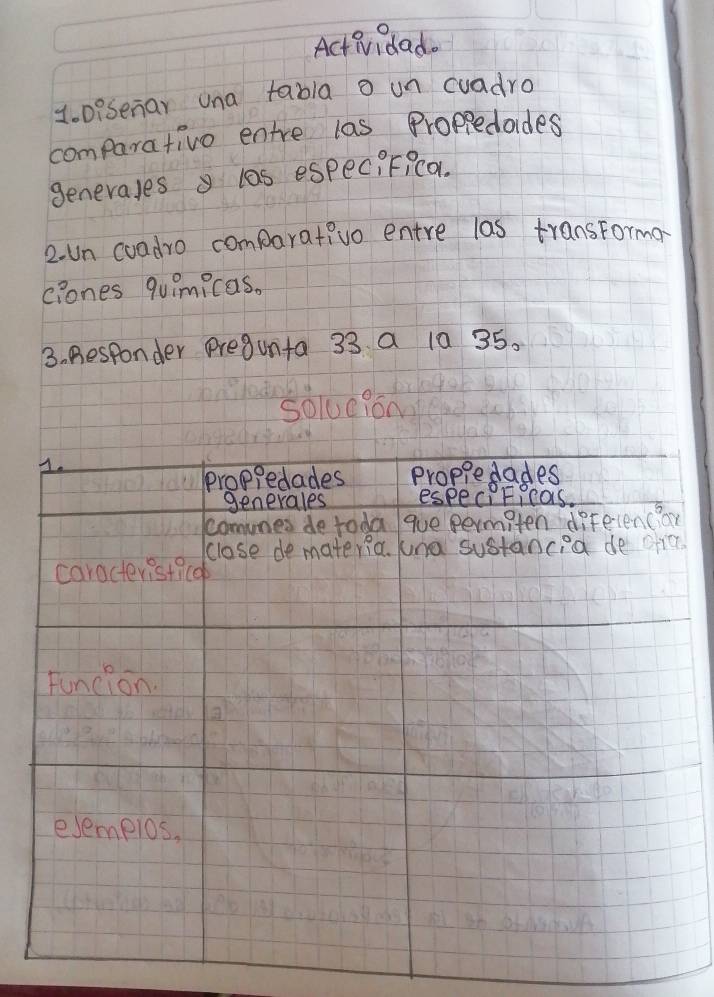 Actividad.
1. Diseñar una tabla o un cuadro
comparativo entre las Propiedades
generales y las especifica.
2. Un cuadro comparativo entre las transforma
ciones químicas.
3. Responder pregunta 33 a la 35.
solución
1.
propiedades generales
propiedades especificas.
caracteristicas
comunes de toda clase de materia.
que permiten diferenciar una sustancia de otra
Función.
ejemplos.